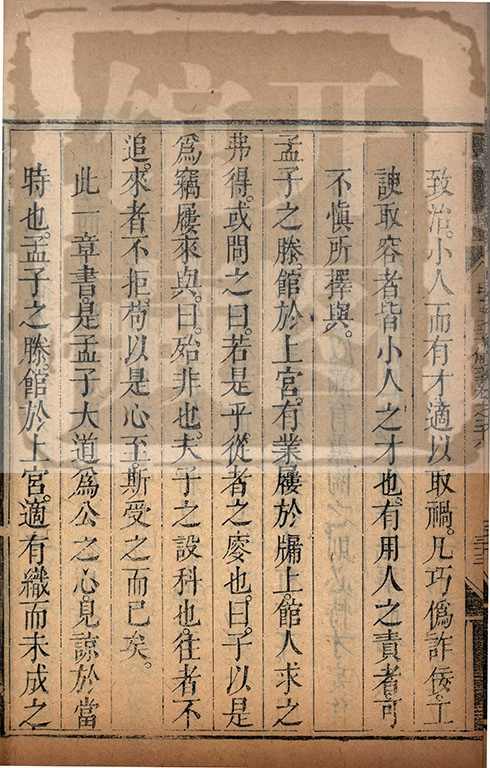 致治。小人而有才適以取禍。凡巧僞詐佞。工
諛取容者皆小人之才也。有用人之責者可
不慎所擇與。
孟子之滕。館於上宮。有業屨於牖上。館人求之
弗得。或問之曰。若是乎從者之廋也。曰。子以是
爲竊屨來與。曰。殆非也。夫子之設科也。往者不
追。來者不拒。苟以是心至。斯受之而已矣。
此一章書。是孟子大道爲公之心。見諒於當
時也。孟子之滕。館於上宮。適有織而未成之